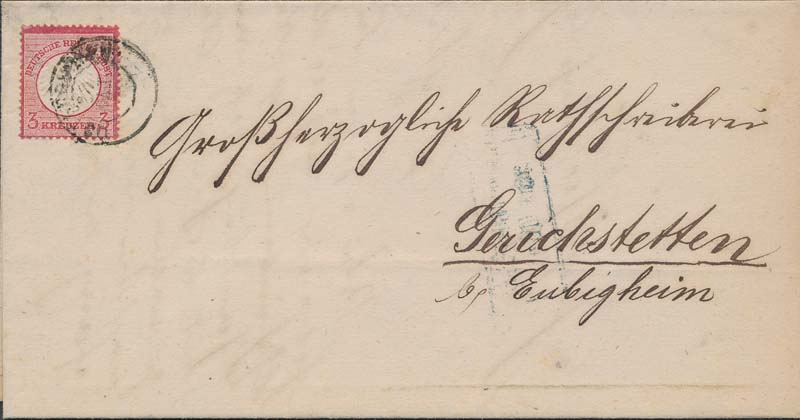 DEUTSCHE REICHS-POST
3 3
KREUZER
Großherzogliche Rathschreiberei
Gerichstetten
b/ Eubigheim